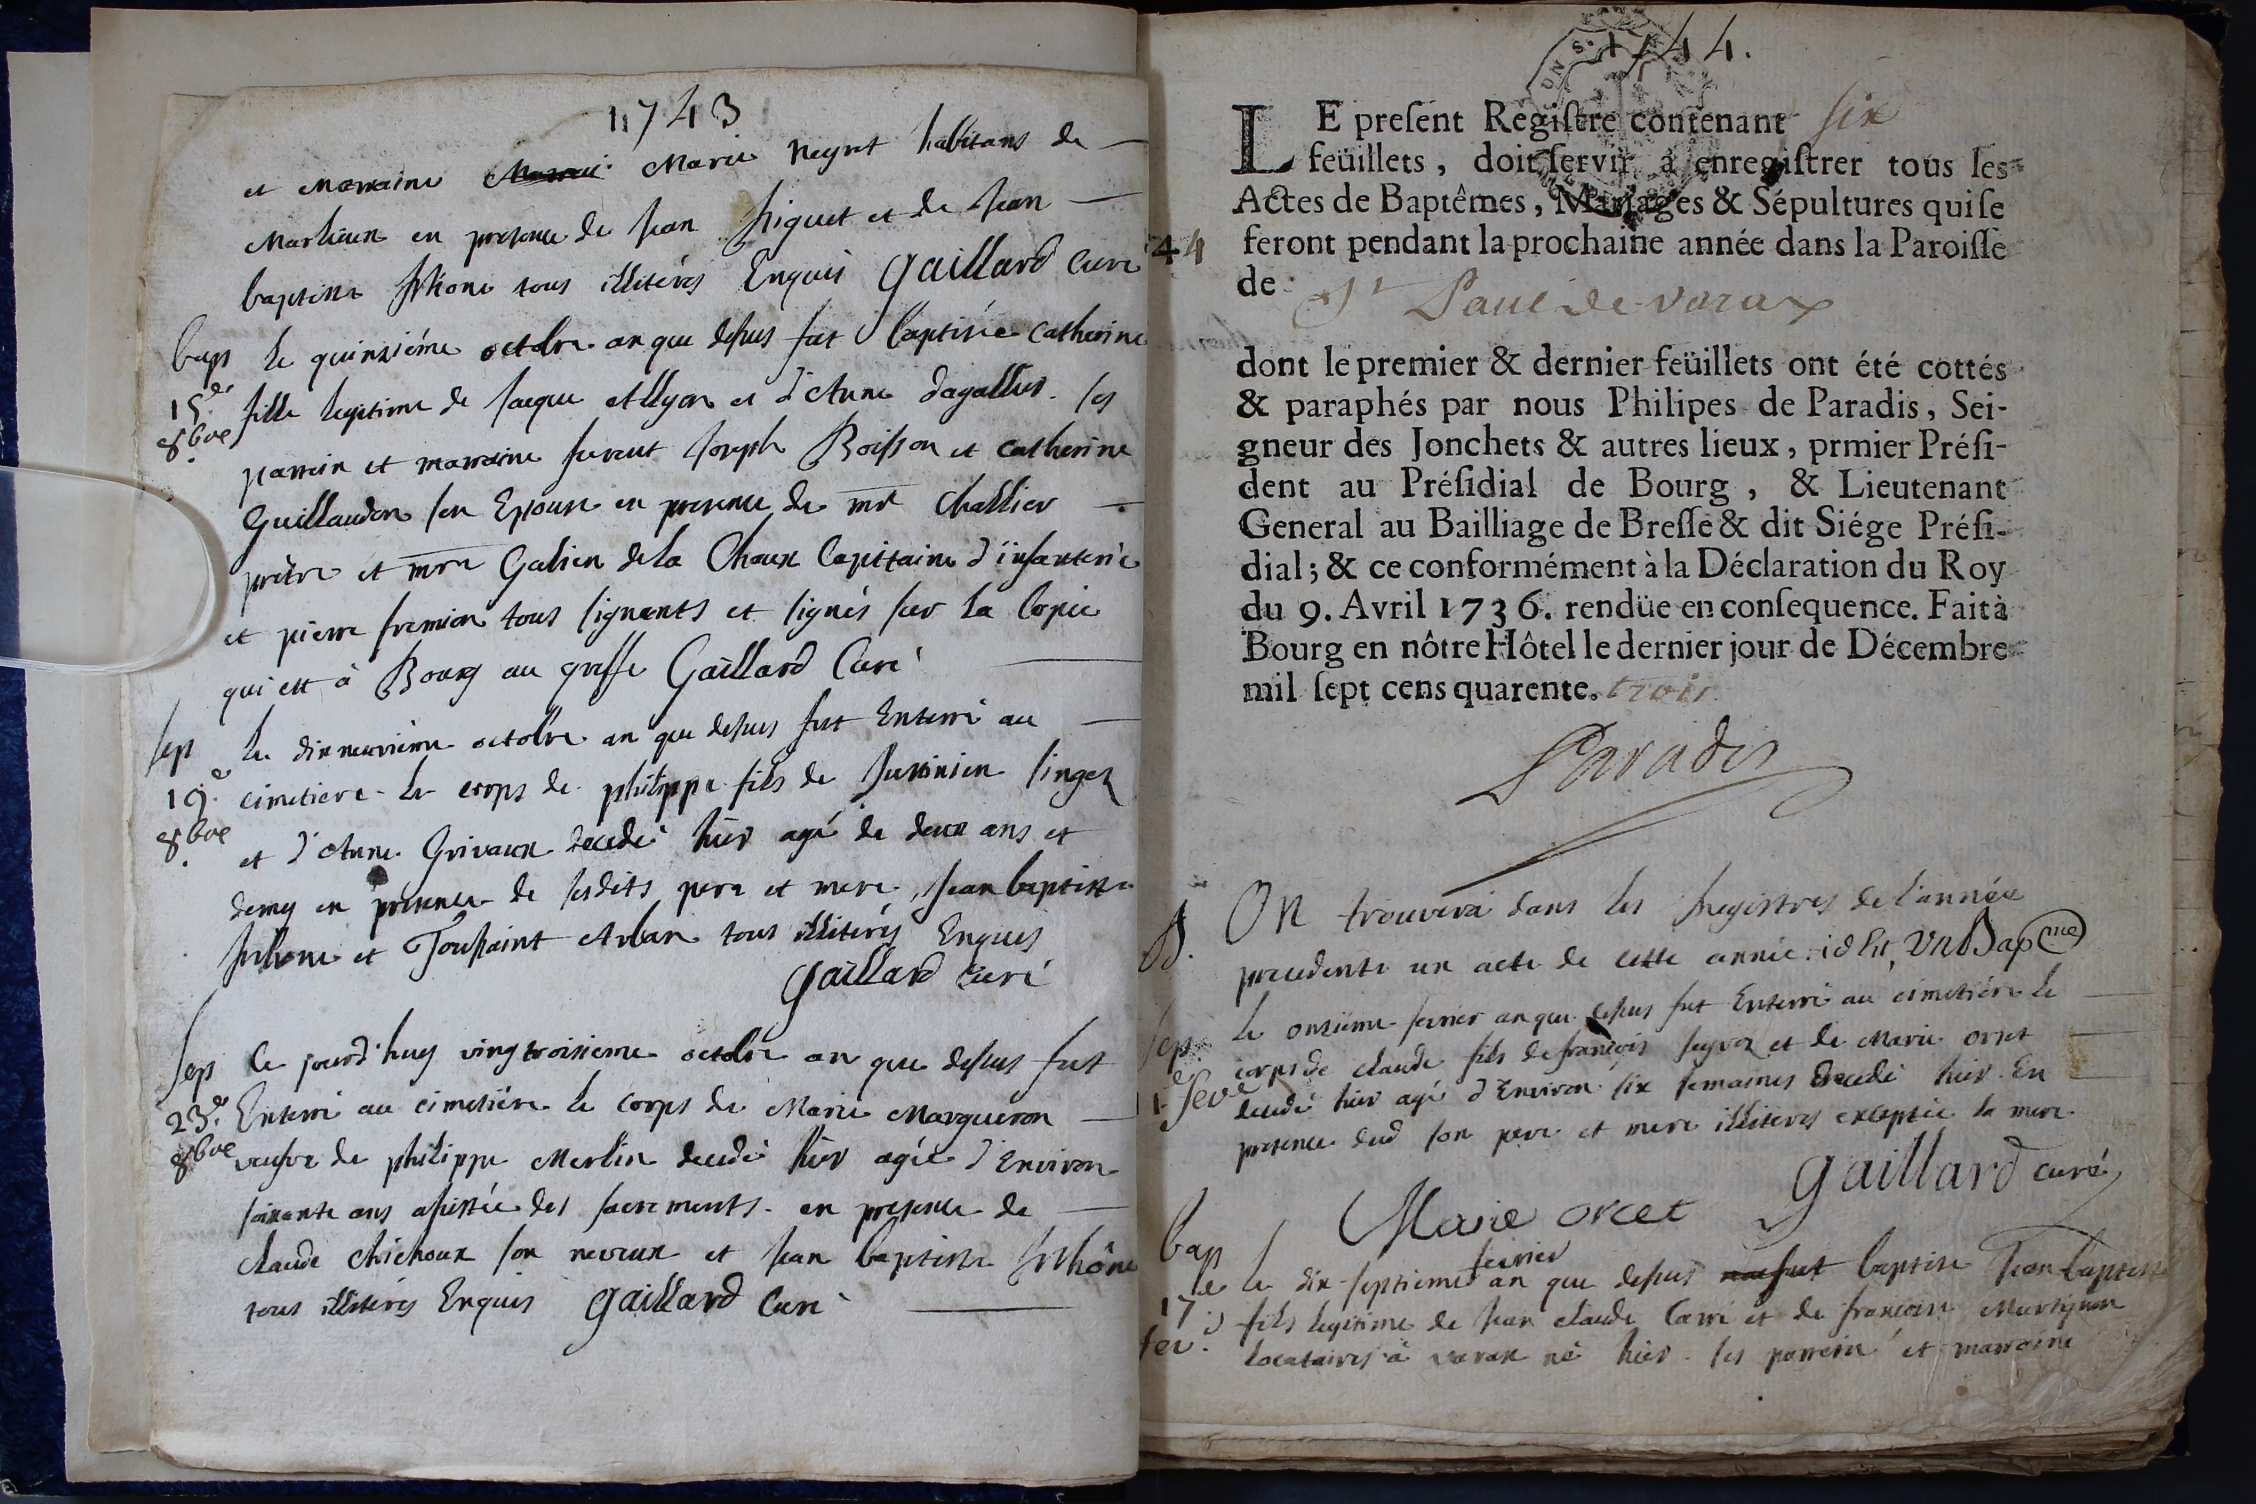 1743
et marraine Marie Neyret habitans de
Marlieux en presence de Jean Piguet et de Jean
baptiste tous illiterés Enquis Gaillard Curé
bap le quinziéme octobre an que dessus fut baptisée Catherine
15.e fille legitime de Jacque Allyon et d'Anne dagallier. ses
8.bre parrein et marraine furent Joseph Boisson et Catherine
Guillaudon son Epouse en presence de mre Challier
prêtre et mre Galien de la Chaux Capittaine d'infanterie
et pierre fremion tous signants et signés sur la Copie
qui est à Bourg au greffe Gaillard Curé
sep le dixneuvieme octobre an que dessus fut Enterré au
19.e cimetiere le corps de philippe fils de Justinien singez
8.bre et d'Anne Grivaux decedé hier agé de deux ans et
demy en presence de sesdits pere et mere, Jean baptiste
et Toussaint Arban tous illiterés Enquis
Gaillard Curé
sep Ce jourd'huy vingtroisieme octobre an que dessus fut
23.e Enterré au cimetiére le corps de Marie Margueron
8.bre veufve de philippe Merlin decedé hier agée d'Environ
soixante ans assistée des sacrements. en presence de
claude Chichoux son neveux et Jean baptiste
tous illiterés Enquis Gaillard Curé
1744.
LE present Registre contenant six
feüillets, doit servir à enregistrer tous les
Actes de Baptêmes, Mariages & Sépultures qui se
44 feront pendant la prochaine année dans la Paroisse
de St Paul de Varax
dont le premier & dernier feüillets ont été cottés
& paraphés par nous Philipes de Paradis, Sei-
gneur des Jonchets & autres lieux, prmier Prési-
dent au Présidial de Bourg, & Lieutenant
General au Bailliage de Bresse & dit Siége Prési-
dial; & ce conformément à la Déclaration du Roy
du 9. Avril 1736. rendüe en consequence. Fait à
Bourg en nôtre Hôtel le dernier jour de Décembre
mil sept cens quarente. trois
Paradis
B. On trouvera dans les Registres de l'année
precedente un acte de cette année. id est, Un Bapme
sep le onzieme fevrier an que dessus fut Enterré au cimetiére le
corps de claude fils de françois seyvoz et de Marie orset
fevr decedé hier agé d'Environ six semaines decedé hier. En
presence dud son pere et mere illiteres exceptée la mere
Gaillard curé
Marie orcet
bap le dix-septieme fevrier an que dessus baptisé Jean baptiste
17.e fils legitime de Jean claude Carré et de françoise Martignon
fev. locataires à varax né hier. ses parrein et marraine